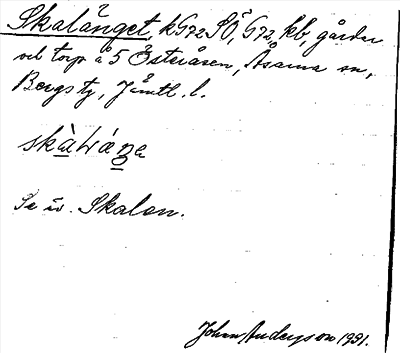 Skalänget, kG72SÖ, G72 kb, gårdar
och torp å 5 Österåsen, Åsarna sn,
Bergs tg, Jämtl. l.
skàláŋe
Se äv. Skalon.
John Anderson 1931.